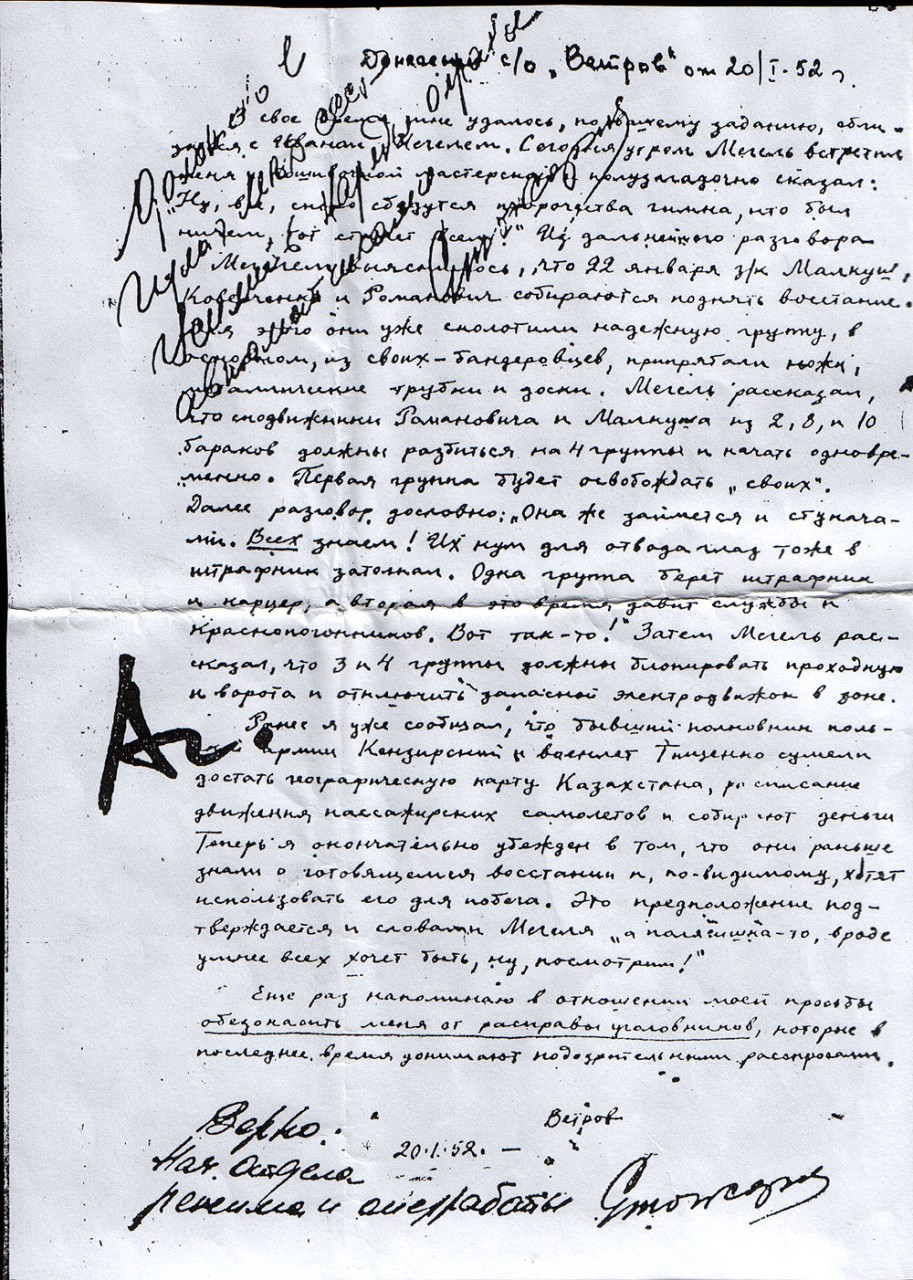 Донесение с/о „Ветров" от 20/I-52 г.
В свое время мне удалось, по вашему заданию, сбли-
зиться с Иваном Мегелем. Сегодня утром Мегель встретил
меня у пошивочной мастерской и полузагадочно сказал:
„Ну, все, скоро сбудутся пророчества гимна, кто был
ничем, тот станет всем!" Из дальнейшего разговора
с Мегелем выяснилось, что 22 января з/к Малкуш,
Коверченко и Романович собираются поднять восстание.
Для этого они уже сколотили надежную группу, в
основном, из своих-бандеровцев, припрятали ножи,
металлические трубки и доски. Мегель рассказал,
что сподвижники Романовича и Малкуша из 2, 8, и 10
бараков должны разбиться на 4 группы и начать одновре-
менно. Первая группа будет освобождать „своих".
Далее разговор дословно: „Она же займется и стукача-
ми. Всех знаем! Их кум для отвода глаз тоже в
штрафник затолкал. Одна группа берет штрафник
и карцер, а вторая в это время давит службы и
краснопогонников. Вот так-то!" Затем Мегель рас-
сказал, что 3 и 4 группы должны блокировать проходную
и ворота и отключить запасной электродвижок в зоне.
Ранее я уже сообщал, что бывший полковник поль-
ской армии Кензирский и военлет Тищенко сумели
достать географическую карту Казахстана, расписание
движения пассажирских самолетов и собирают деньги
Теперь я окончательно убежден в том, что они раньше
знали о готовящемся восстании и, по-видимому, хотят
использовать его для побега. Это предположение под-
тверждается и словами Мегеля „а полячишка-то, вроде
умнее всех хочет быть, ну, посмотрим!"
Еще раз напоминаю в отношении моей просьбы
обезопасить меня от расправы уголовников, которые в
последнее время донимают подозрительными расспросами.
Ветров
20.1.52. -
Верно:
Нач. отдела
режима и оперработы